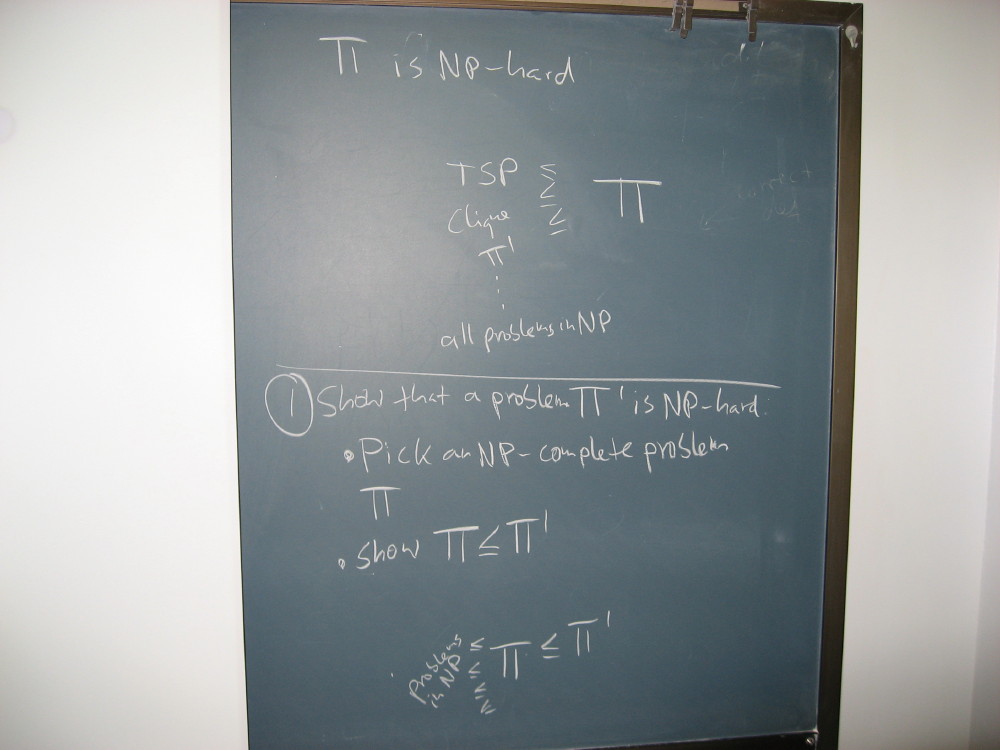 Π is NP-hard
TSP ≤
≤ Π
Clique ≤
Π'
⋮
all problems in NP
① Show that a problem Π' is NP-hard:
• Pick an NP-complete problem
Π
• show Π ≤ Π'
problems ≤ Π ≤ Π'
in NP ≤
≤
≤